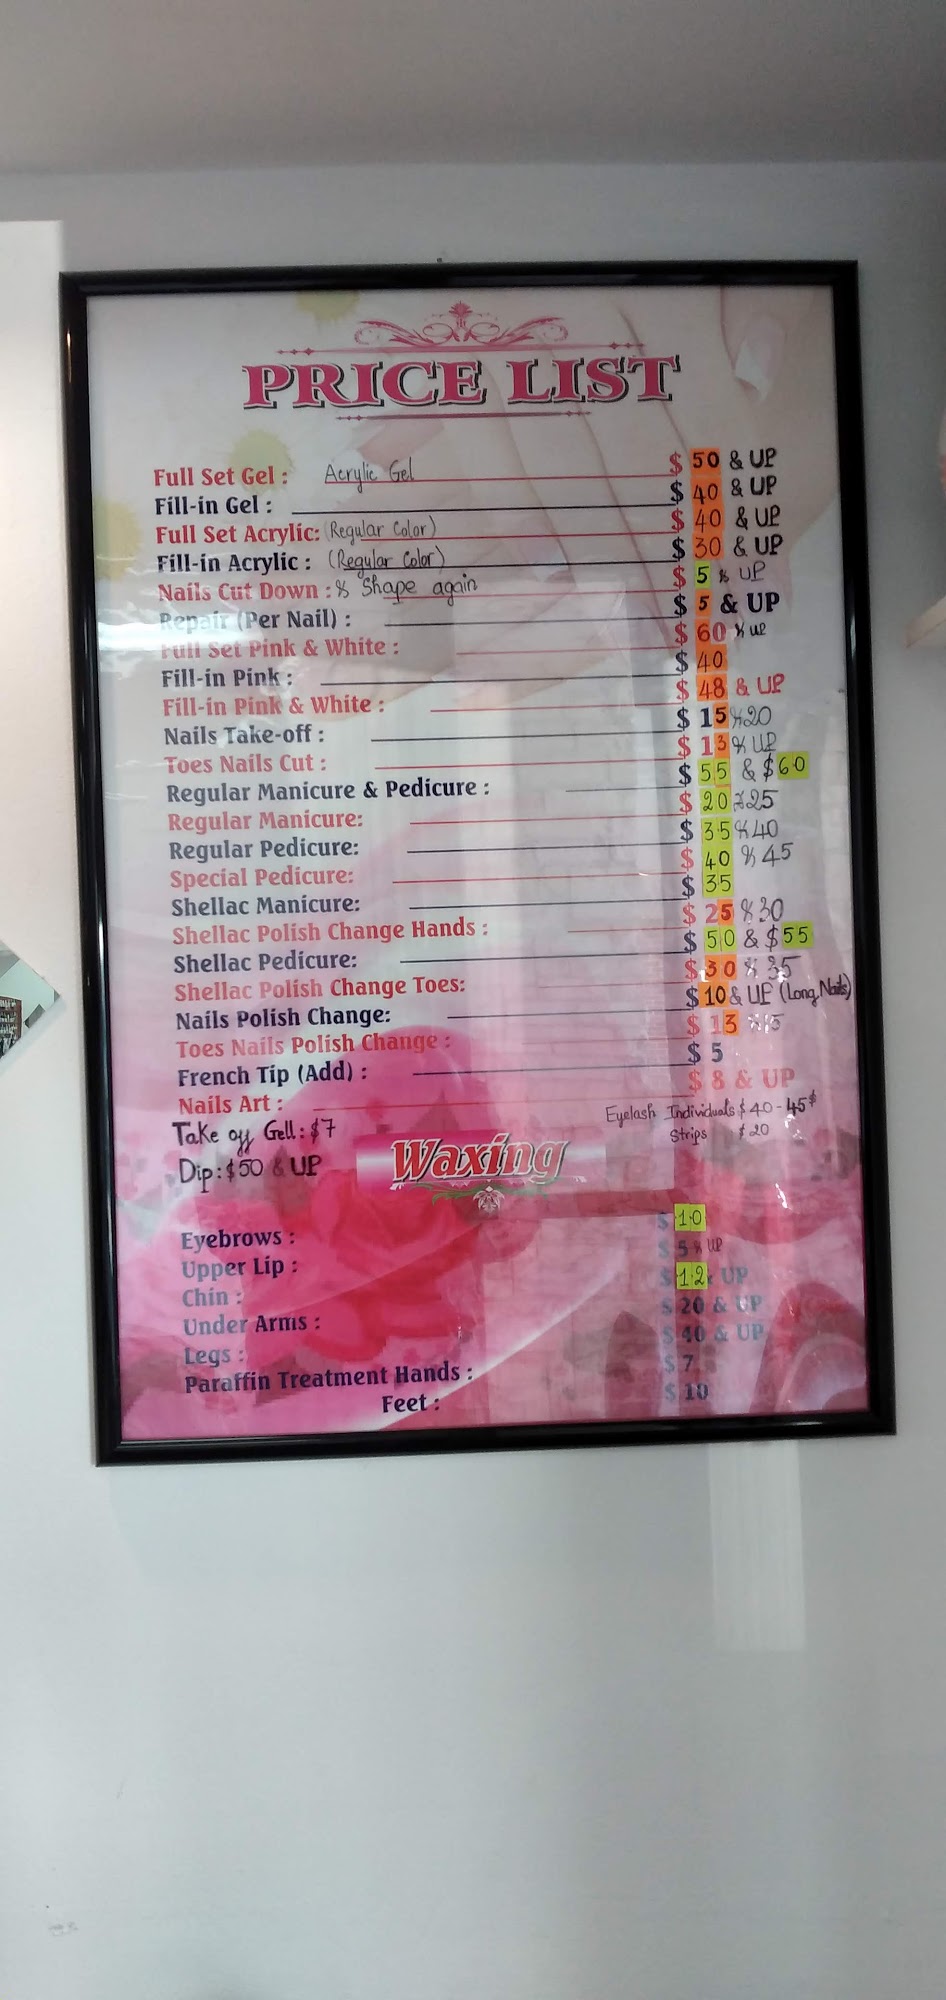 PRICE LIST
Full Set Gel : Acrylic Gel $ 50 & UP
Fill-in Gel : $ 40 & UP
Full Set Acrylic: (Regular Color) $ 40 & UP
Fill-in Acrylic : (Regular Color) $ 30 & UP
Nails Cut Down : & Shape again $ 5 & UP
Repair (Per Nail) : $ 5 & UP
Full Set Pink & White : $ 60 & UP
Fill-in Pink : $ 40
Fill-in Pink & White : $ 48 & UP
Nails Take-off : $ 15 & 20
Toes Nails Cut : $ 13 & UP
Regular Manicure & Pedicure : $ 55 & $60
Regular Manicure: $ 20 & 25
Regular Pedicure: $ 35 & 40
Special Pedicure: $ 40 & 45
Shellac Manicure: $ 35
Shellac Polish Change Hands : $ 25 & 30
Shellac Pedicure: $ 50 & $55
Shellac Polish Change Toes: $ 30 & 35
Nails Polish Change: $ 10 & UP (Long Nails)
Toes Nails Polish Change : $ 13 & 15
French Tip (Add) : $ 5
Nails Art : $ 8 & UP
Take off Gell : $7 Eyelash Individuals $ 40 - 45$
Strips $ 20
Dip : $50 & UP
Waxing
Eyebrows : $ 10
Upper Lip : $ 5 & UP
Chin : $ 12 & UP
Under Arms : $ 20 & UP
Legs : $ 40 & UP
Paraffin Treatment Hands : $ 7
Feet : $ 10